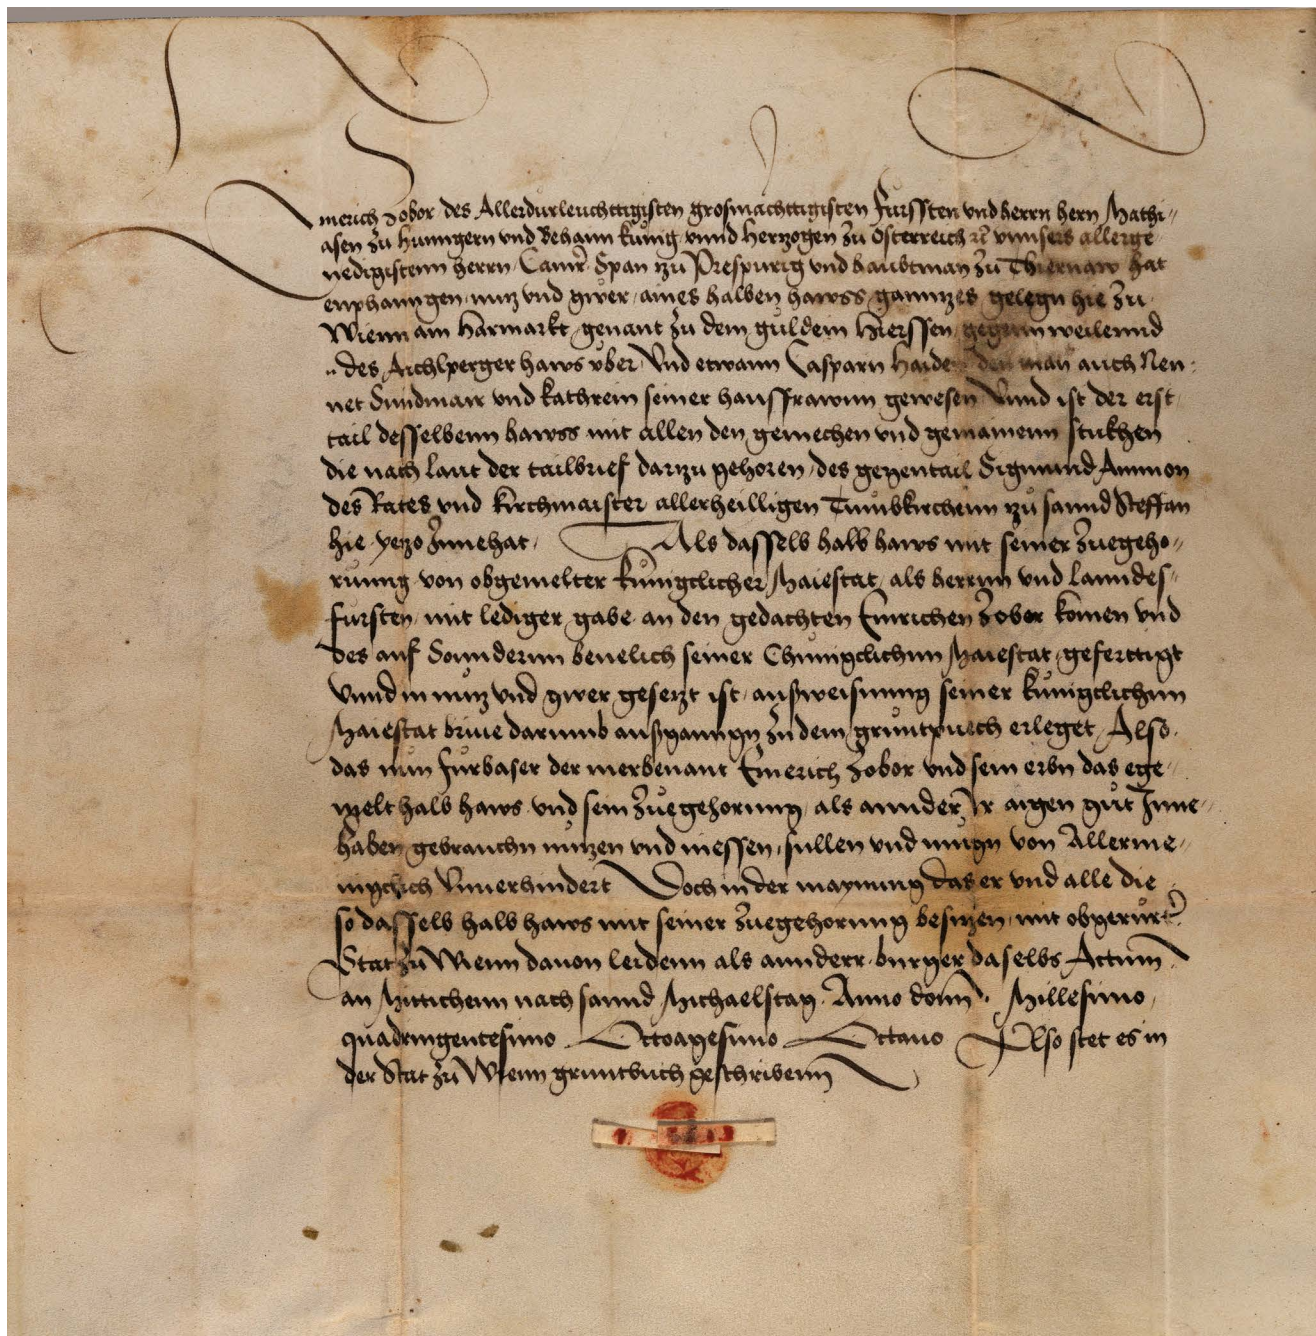 Emerich Zobor des Allerdurleuchttigisten grosmächttigisten Furssten vnd herrn hern Mathi-
asen zu Hunngern vnd Behaim kunig vnnd Hertzogen zu Osterreich rc vnnsers allerge
nedigistenn herrn Camrer Span tzu Prespurg vnd haubtman zu Thiernaw hat
enphanngen nutz vnd gwer aines halben hawss ganntzes gelegn hie zu
Wienn am Harmarkt genant zu dem guldein Hierssen gegenn weilennd
des Aichlperger haws vber Vnd etwann Casparn Haiden den man auch Nen
net Sundmair vnd kathrein seiner hausfrawnn gewesen Vnnd ist der erst
tail desselbenn hawss mit allen den gemechen vnd gemainenn stukhen
die nach laut der tailbrief dartzu gehoren des gegentail Sigmund Ammon
des Rates vnd kirchmaister allerheilligen Tumbkirchenn tzu sannd Steffan
hie yetzo Innehat Als dasselb halb haws mit seiner Zuegeho-
runng von obgemelter kunigclicher Maiestat als herrnn vnd lanndes-
fursten mit lediger gabe an den gedachten Emrichen Zobor komen vnd
des auf Soundernn beuelich seiner Chunigclichnn Maiestat geferttigt
Vnnd in nutz vnd gwer gesetzt ist außweisunng seiner kunigclichnn
Maiestat briue darumb außganngn zu dem gruntpuech erleget Also
das nun furbaser der merbenant Emerich Zobor vnd sein erbn das ege-
melt halb haws vnd sein Zuegehorung als annder Ir aigen gut Inne-
haben gebrauchn nutzen vnd niessen sullen vnd mugn von Allerme-
nigclich Vnuerhindert Doch in der maynung das er vnd alle die
so dasselb halb haws mit seiner Zuegehorung besitzen mit obgerurter
Stat zu Wienn dauon leidenn als annderr burger daselbs Actum
an Mittichenn nach sannd Michaelstag Anno domi Millesimo
quadringentesimo Octoagesimo Octauo Also stet es in
der Stat zu Wienn gruntbuch geschribenn